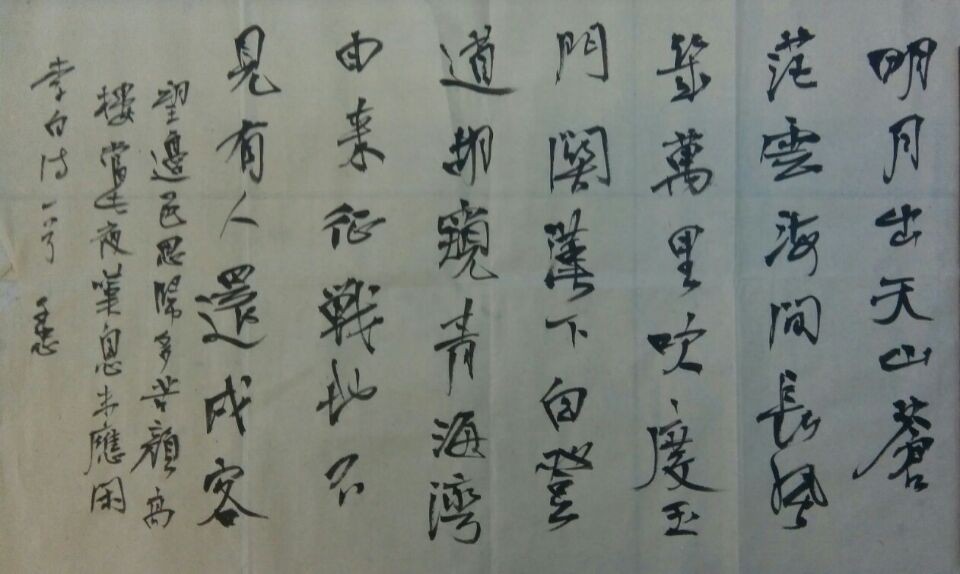 明月出天山蒼
茫雲海間長風
幾萬里吹度玉
門關漢下白登
道胡窺青海灣
由來征戰地不
見有人還戍客
望邊邑思歸多苦顏高
樓當此夜嘆息未應閑
李白詩一首